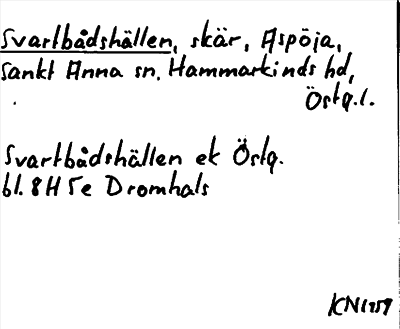 Svartbådshällen, skär, Aspöja,
Sankt Anna sn. Hammarkinds hd,
Östg.l.
Svartbådshällen ek Östg.
bl. 8H 5e Dromhals
KN1959